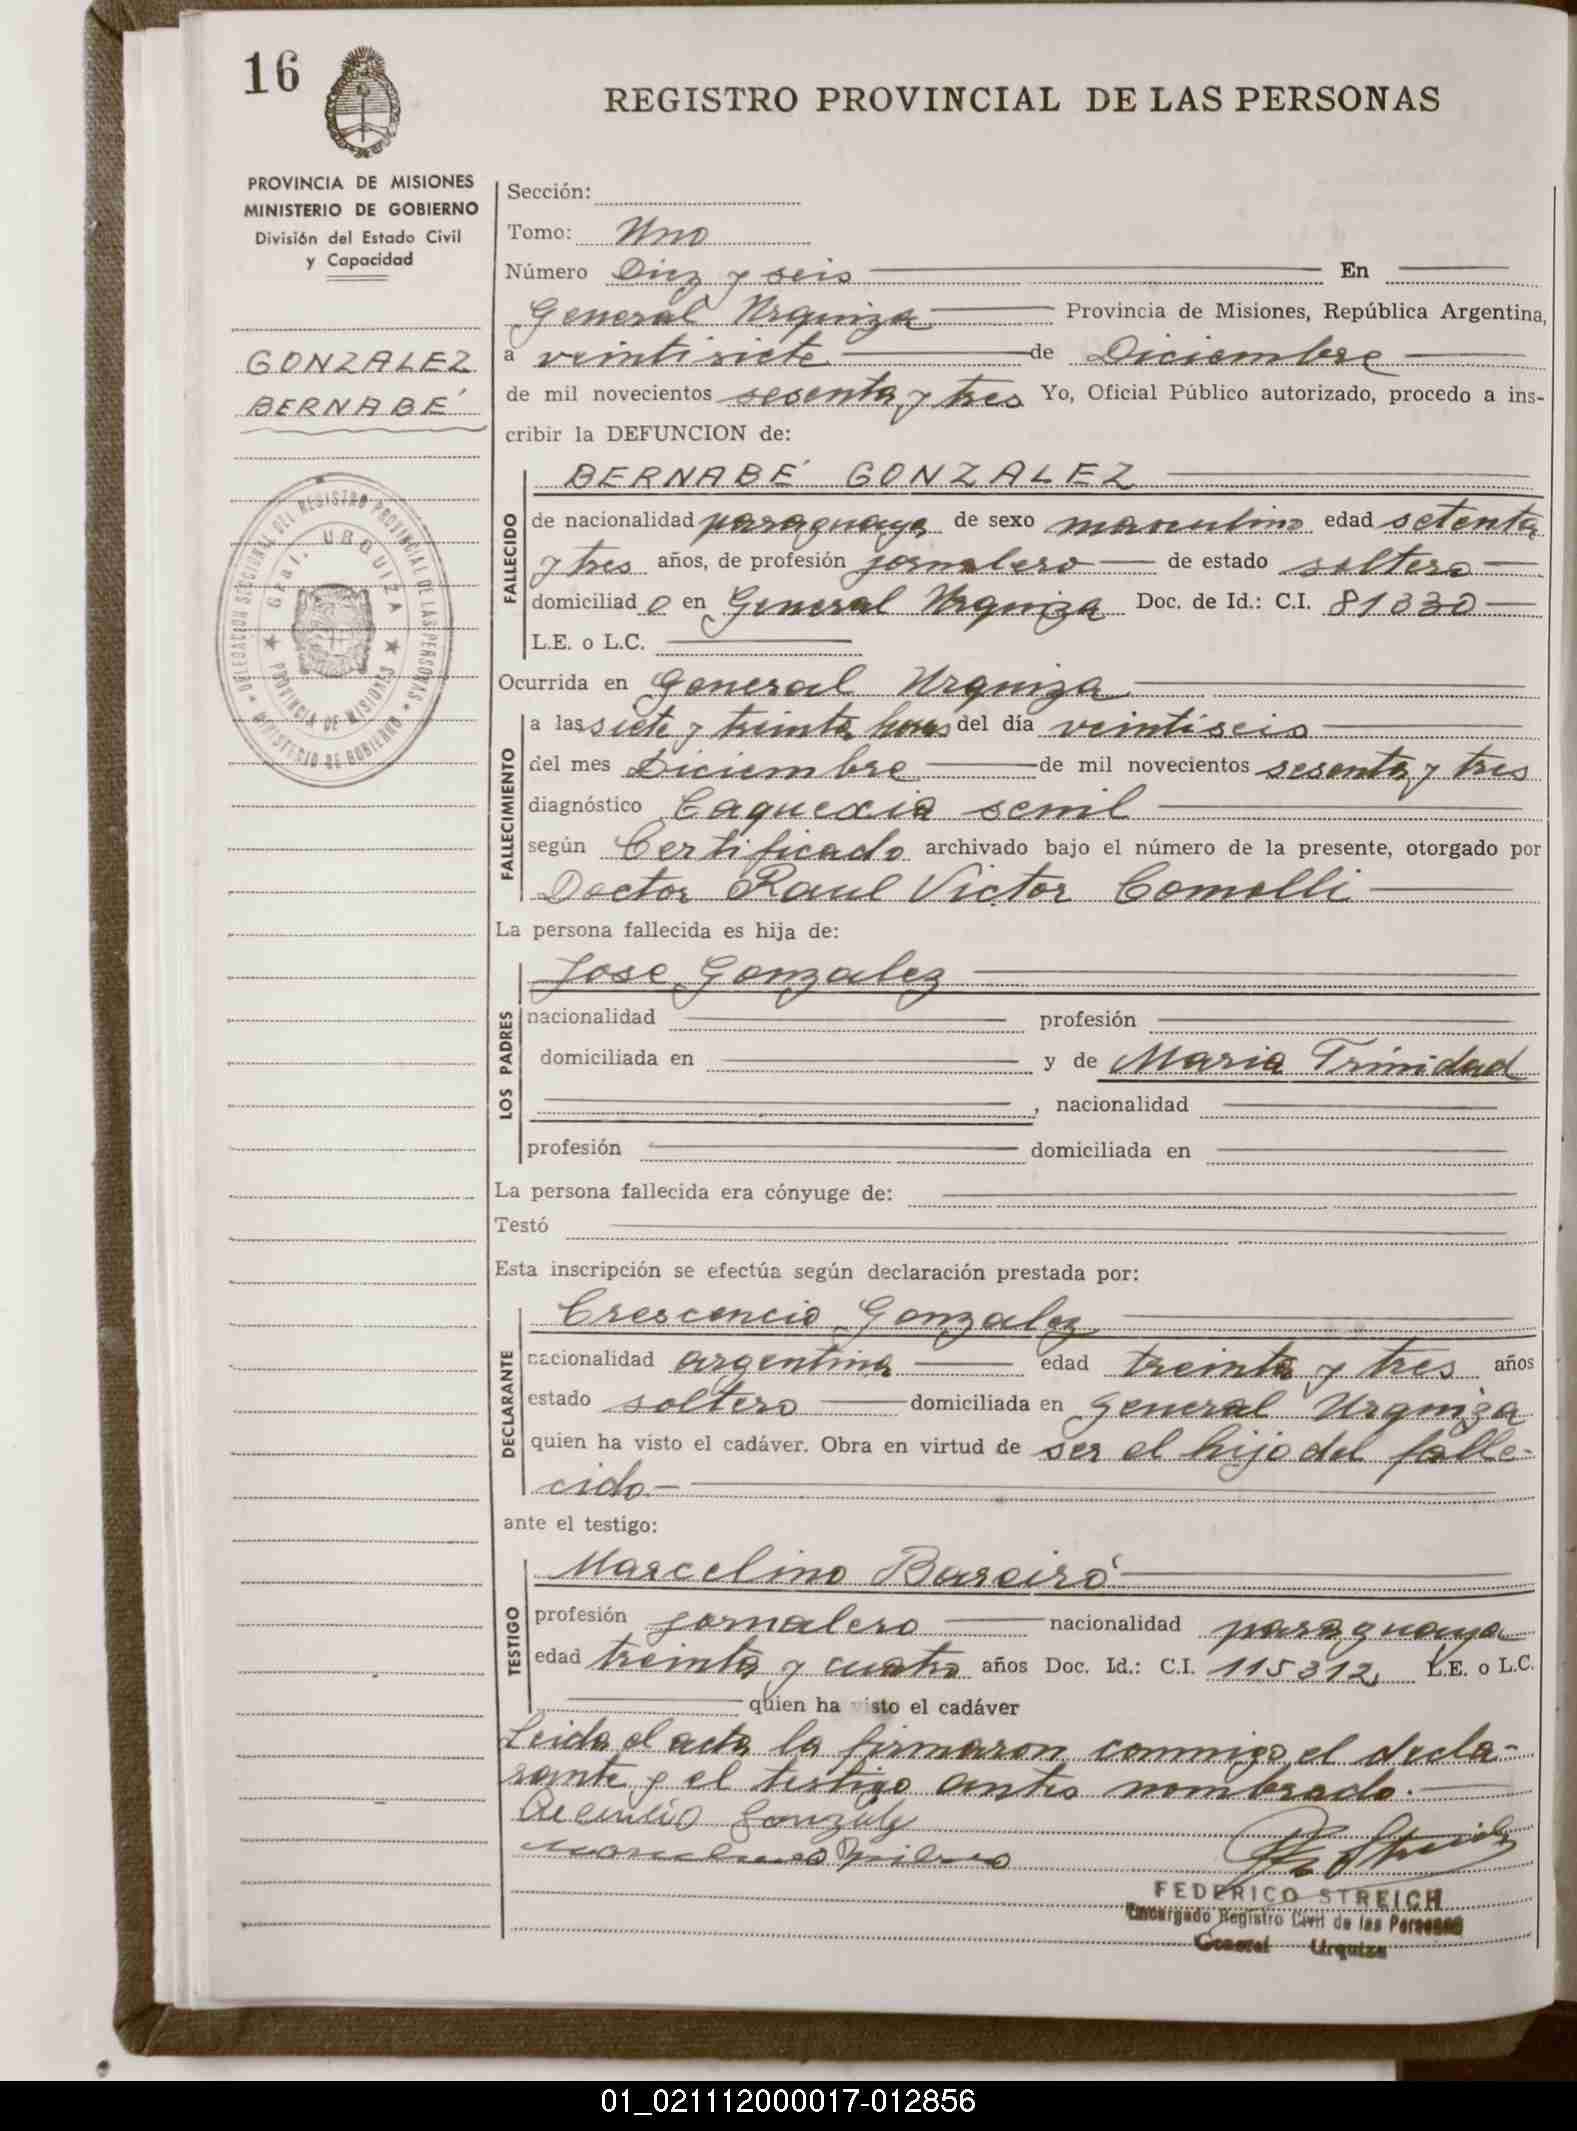 16
REGISTRO PROVINCIAL DE LAS PERSONAS
PROVINCIA DE MISIONES
MINISTERIO DE GOBIERNO
División del Estado Civil
y Capacidad
GONZALEZ
BERNABÉ
DELEGACION SECCIONAL DEL REGISTRO PROVINCIAL DE LAS PERSONAS
MINISTERIO DE GOBIERNO
GRAL. URQUIZA
PROVINCIA DE MISIONES
Sección:
Tomo: Uno
Número Diez y seis En
General Urquiza Provincia de Misiones, República Argentina,
a veintisiete de Diciembre
de mil novecientos sesenta y tres Yo, Oficial Público autorizado, procedo a ins-
cribir la DEFUNCION de:
FALLECIDO
BERNABÉ GONZALEZ
de nacionalidad paraguaya de sexo masculino edad setenta
y tres años, de profesión jornalero de estado soltero
domiciliado en General Urquiza Doc. de Id.: C.I. 81330
L.E. o L.C.
Ocurrida en General Urquiza
FALLECIMIENTO
a las siete y treinta horas del día veintiseis
del mes Diciembre de mil novecientos sesenta y tres
diagnóstico Caquexia senil
según Certificado archivado bajo el número de la presente, otorgado por
Doctor Raul Victor Comolli
La persona fallecida es hija de:
LOS PADRES
Jose Gonzalez
nacionalidad profesión
domiciliada en y de Maria Trinidad
, nacionalidad
profesión domiciliada en
La persona fallecida era cónyuge de:
Testó
Esta inscripción se efectúa según declaración prestada por:
DECLARANTE
Crescencio Gonzalez
nacionalidad argentina edad treinta y tres años
estado soltero domiciliada en General Urquiza
quien ha visto el cadáver. Obra en virtud de ser el hijo del falle-
cido.-
ante el testigo:
TESTIGO
Marcelino Bareiró
profesión jornalero nacionalidad paraguaya
edad treinta y cuatro años Doc. Id.: C.I. 115312 L.E. o L.C.
quien ha visto el cadáver
Leida el acta la firmaron conmigo el decla-
rante y el testigo antes nombrado.
FEDERICO STREICH
Encargado Registro Civil de las Personas
General Urquiza
01_021112000017-012856